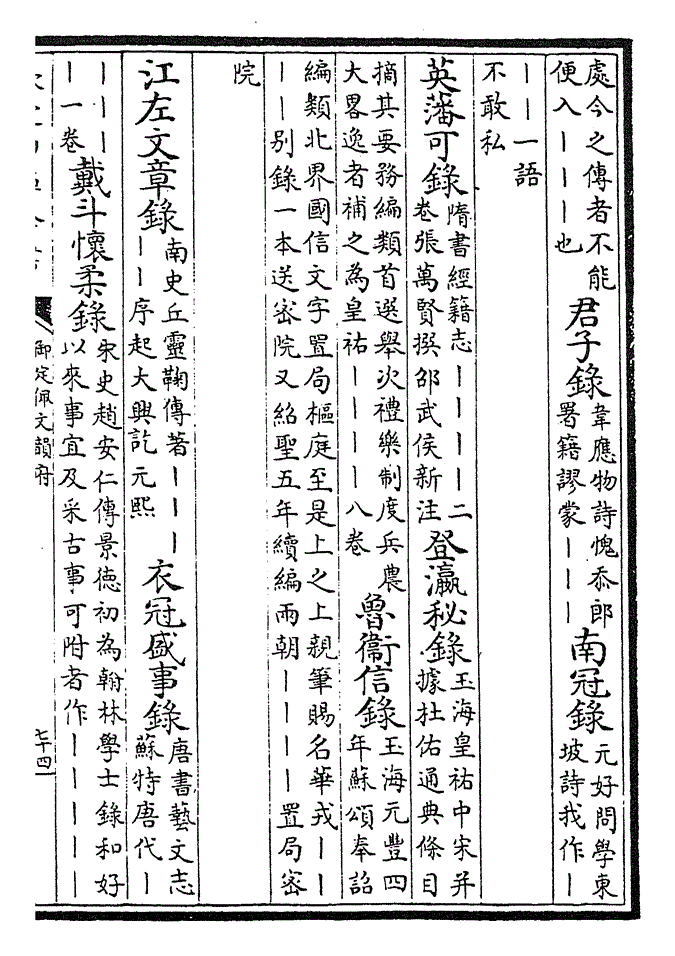 處今之傳者不能
便入｜｜｜也
君子錄
韋應物詩愧忝郎
署籍謬蒙｜｜｜
南冠錄
元好問學東
坡詩我作｜
｜｜一語
不敢私
英藩可錄
隋書經籍志｜｜｜｜二
卷張萬賢撰邵武侯新注
登瀛秘錄
玉海皇祐中宋并
據杜佑通典條目
摘其要務編類首選舉次禮樂制度兵農
大畧逸者補之為皇祐｜｜｜｜八卷
魯衞信錄
玉海元豐四
年蘇頌奉詔
編類北界國信文字置局樞庭至是上之上親筆賜名華戎｜｜
｜｜别錄一本送密院又紹聖五年續編兩朝｜｜｜｜置局密
院
江左文章錄
南史丘靈鞠傳著｜｜｜
｜｜序起大興訖元熙
衣冠盛事錄
唐書藝文志
蘇特唐代｜
｜｜｜
｜一卷
戴斗懷柔錄
宋史趙安仁傳景德初為翰林學士錄和好
以來事宜及采古事可附者作｜｜｜｜
御定佩文韻府
七十四